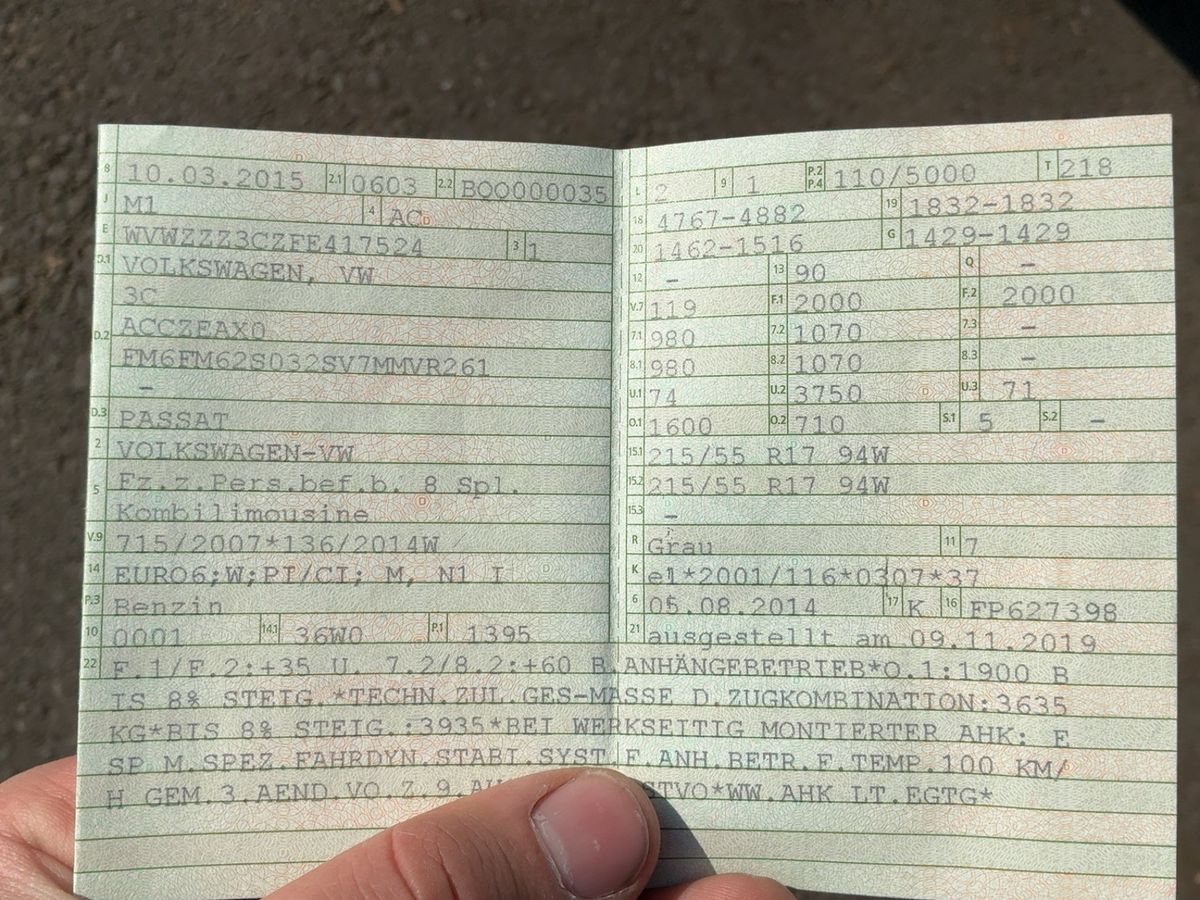 B 10.03.2015 2.1 0603 2.2 BOO000035
J M1 4 AC
E WVWZZZ3CZFE417524 3 1
D.1 VOLKSWAGEN, VW
3C
D.2 ACCZEAX0
FM6FM62S032SV7MMVR261
–
D.3 PASSAT
2 VOLKSWAGEN-VW
5 Fz.z.Pers.bef.b. 8 Spl.
Kombilimousine
V.9 715/2007*136/2014W
14 EURO6;W;PI/CI; M, N1 I
P.3 Benzin
10 0001 14.1 36W0 P.1 1395
L 2 9 1 P.2 P.4 110/5000 T 218
18 4767-4882 19 1832-1832
20 1462-1516 G 1429-1429
12 – 13 90 Q –
V.7 119 F.1 2000 F.2 2000
7.1 980 7.2 1070 7.3 –
8.1 980 8.2 1070 8.3 –
U.1 74 U.2 3750 U.3 71
O.1 1600 O.2 710 S.1 5 S.2 –
15.1 215/55 R17 94W
15.2 215/55 R17 94W
15.3 –
R Grau 11 7
K e1*2001/116*0307*37
6 05.08.2014 17 K 16 FP627398
21 ausgestellt am 09.11.2019
22 F.1/F.2:+35 U. 7.2/8.2:+60 B.ANHÄNGEBETRIEB*O.1:1900 B
IS 8% STEIG.*TECHN.ZUL.GES-MASSE D.ZUGKOMBINATION:3635
KG*BIS 8% STEIG.:3935*BEI WERKSEITIG MONTIERTER AHK: E
SP M.SPEZ.FAHRDYN.STABI.SYST.F.ANH.BETR.F.TEMP.100 KM/
H GEM.3.AEND.VO.Z.9. STVO*WW.AHK LT.EGTG*